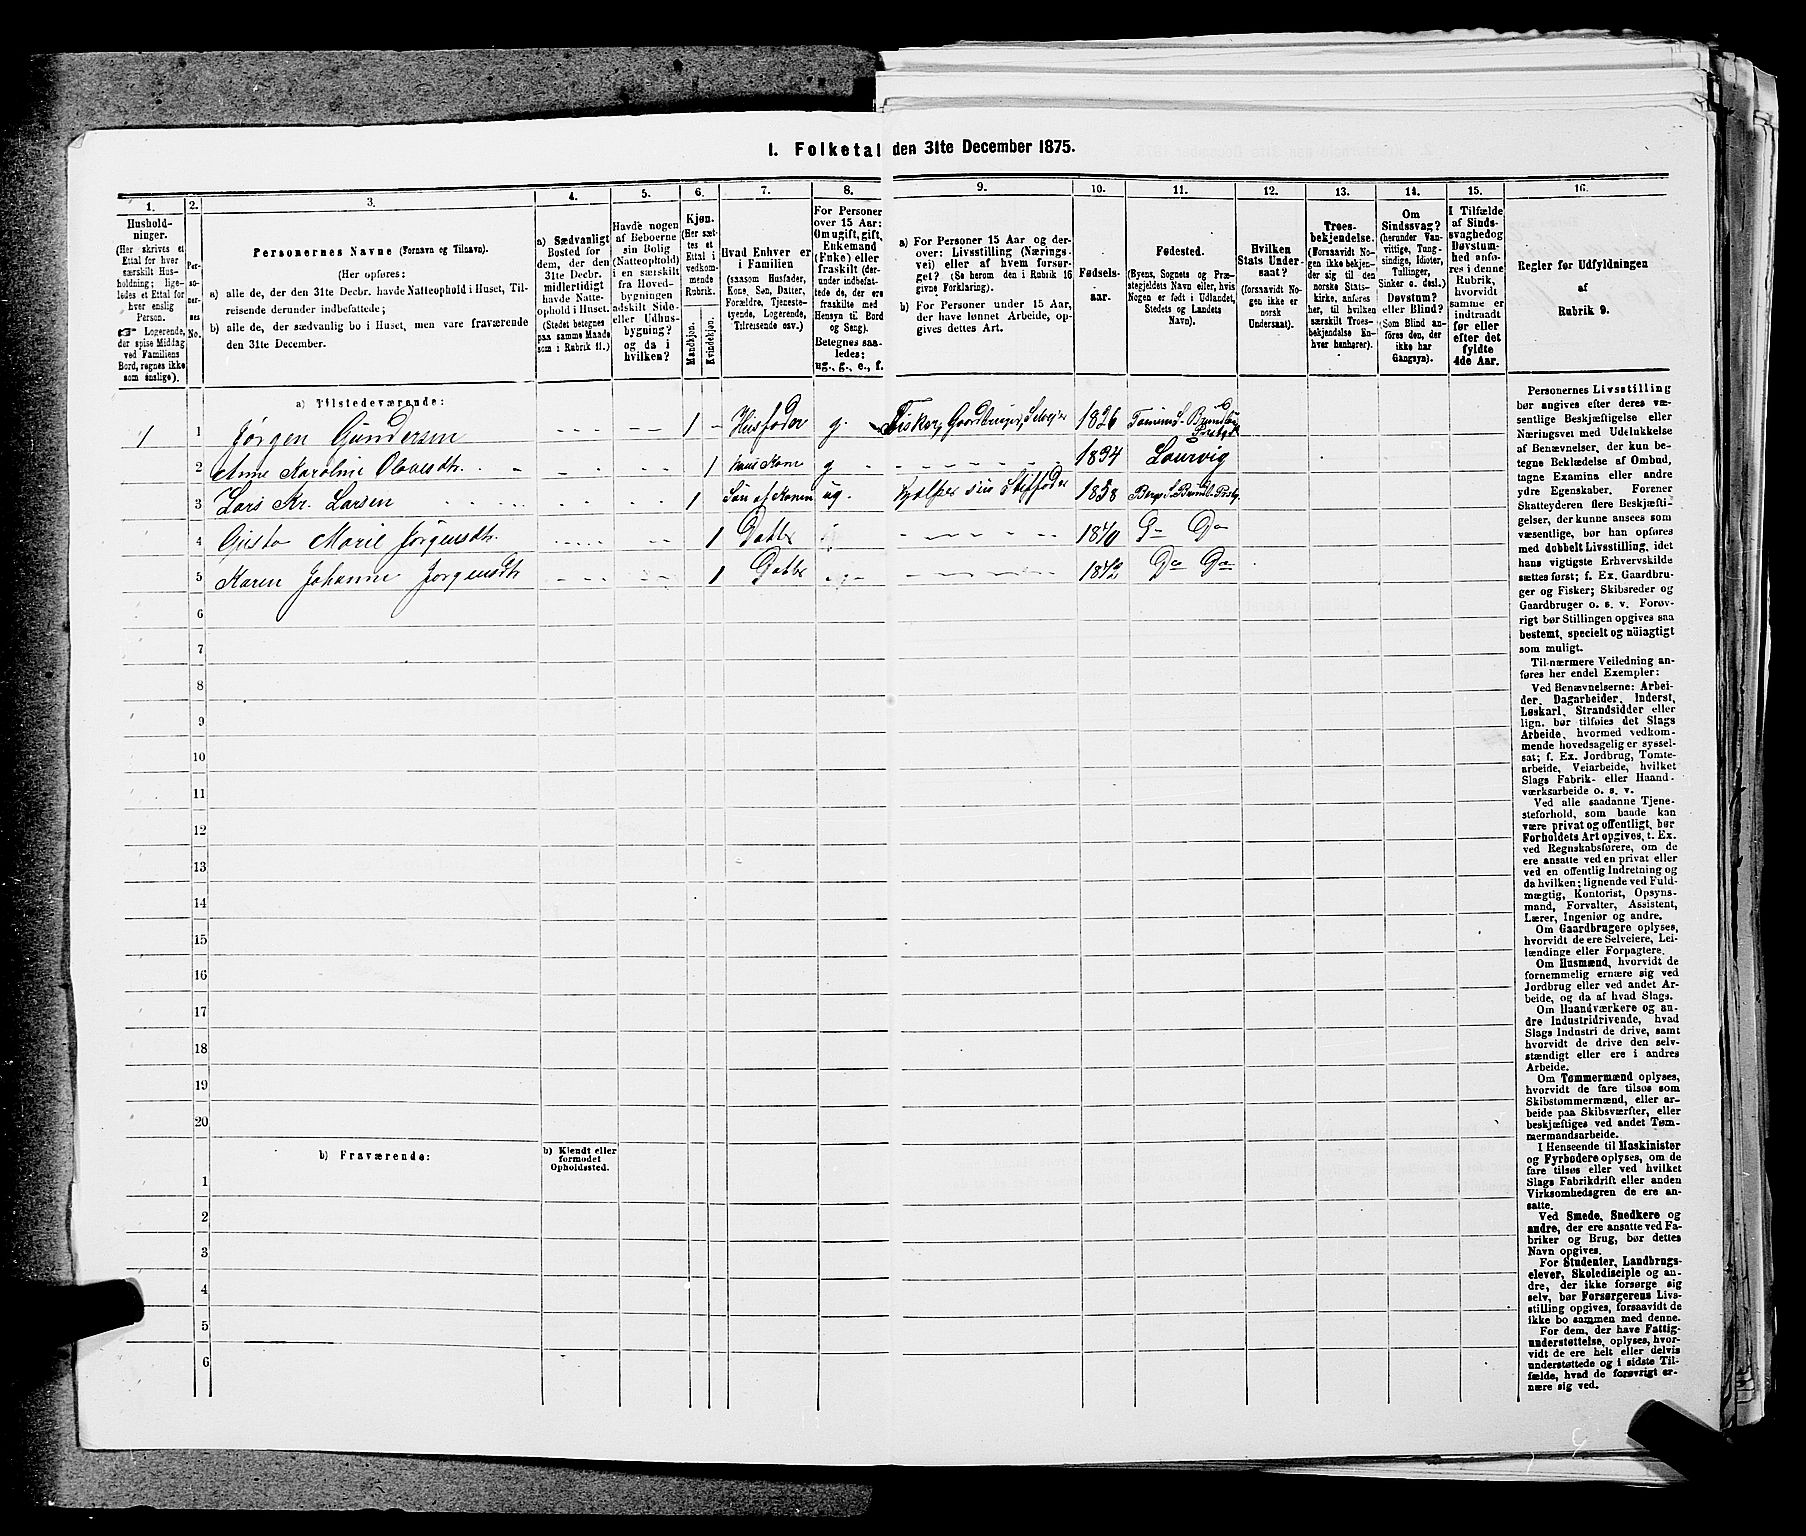 I. Folketal den 31te December 1875.
1.
2.
3.
4.
5.
6.
7.
8.
9.
10.
11.
12.
13.
14.
15.
16.
Hushold-
ninger.
(Her skrives et
Ettal for hver
særskilt Hus-
holdning; lige-
ledes et Ettal for
hver enslig
Person.
☞ Logerende,
der spise Middag
ved Familiens
Bord, regnes ikke
som enslige).
Per-
so-
ner-
nes
No.
Personernes Navne (Fornavn og Tilnavn).
(Her opføres:
a) alle de, der den 31te Decbr. havde Natteophold i Huset, Til-
reisende derunder indbefattede;
b) alle de, der sædvanlig bo i Huset, men vare fraværende
den 31te December.
a) Sædvanligt
Bosted for
dem, der den
31te Decbr.
midlertidigt
havde Natte-
ophold i Huset.
(Stedet betegnes
paa samme Maade
som i Rubrik 11.)
Havde nogen
af Beboerne
sin Bolig
(Natteophold)
i en særskilt
fra Hoved-
bygningen
adskilt Side-
eller Udhus-
bygning?
og da i
hvilken?
Kjøn.
(Her sæt-
tes et
Ettal i
vedkom-
mende
Rubrik.
Mandkjøn.
Kvindekjøn.
Hvad Enhver er
i Familien
(saasom Husfader,
Kone, Søn, Datter,
Forældre, Tjeneste-
tyende, Logerende,
Tilreisende osv.)
For Personer
over 15 Aar:
Om ugift, gift,
Enkemand
(Enke) eller
fraskilt (der-
under indbefat-
tede de, der ere
fraskilte med
Hensyn til Bord
og Seng).
Betegnes saa-
ledes:
ug., g., e., f.
a) For Personer 15 Aar og der-
over: Livsstilling (Nærings-
vei) eller af hvem forsør-
get? (Se herom den i Rubrik 16
givne Forklaring).
b) For Personer under 15 Aar,
der have lønnet Arbeide, op-
gives dettes Art.
Fødsels-
aar.
Fødested.
(Byens, Sognets og Præ-
stegjeldets Navn eller, hvis
Nogen er født i Udlandet,
Stedets og Landets
Navn).
Hvilken
Stats Under-
saat?
(forsaavidt No-
gen ikke er
norsk
Undersaat).
Troes-
bekjendelse.
(Forsaavidt No-
gen ikke bekjen-
der sig til den
norske Stats-
kirke, anføres
her, til hvilken
særskilt Troes-
bekjendelse En-
hver henhører).
Om
Sindssvag?
(herunder Van-
vittige, Idioter,
Tullinger,
Sinker o. desl.)
Døvstum?
eller Blind?
(Som Blind an-
føres den, der
ikke har
Gangsyn).
I Tilfælde
af Sinds-
svaghed og
Døvstum-
hed anfø-
res i denne
Rubrik,
hvorvidt
samme er
indtraadt
før eller
efter det
fyldte
4de Aar.
Regler for Udfyldningen
af
Rubrik 9.
a) Tilstedeværende:
1 1 Jørgen Gundersen 1 Husfader g. Fisker, Gaardbruger, Selveier 1826
2 Anne Karoline Olavesdtr. 1 Kone g 1834 Laurvig
3 Lars Kr. Larsen 1 Søn af Konen ug. Hjælper sin Stiffader 1858
4 Marie Jørgensdtr. 1 1870 Do
5 Karen Johanne Jørgensdtr 1 1872 Do Do
6
7
8
9
10
11
12
13
14
15
16
17
18
19
20
b) Fraværende:
b) Kjendt eller
formodet
Opholdssted.
1
2
3
4
5
6
Personernes Livsstilling
bør angives efter deres væ-
sentlige Beskjæftigelse eller
Næringsvei med Udelukkelse
af Benævnelser, der kun be-
tegne Beklædelse af Ombud,
tagne Examina eller andre
ydre Egenskaber. Forener
Skatteyderen flere Beskjæfti-
gelser, der kunne ansees som
væsentlige, bør han opføres
med dobbelt Livsstilling, idet
hans vigtigste Erhvervskilde
sættes først; f. Ex. Gaardbru-
ger og Fisker; Skibsreder og
Gaardbruger o. s. v. Forøv-
rigt bør Stillingen opgives saa
bestemt, specielt og nøiagtigt
som muligt.
Til nærmere Veiledning an-
føres her endel Exempler:
Ved Benævnelserne: Arbei-
der, Dagarbeider, Inderst,
Løskarl, Strandsidder eller
lign. bør tilføies det Slags
Arbeide, hvormed vedkom-
mende hovedsagelig er syssel-
sat; f. Ex. Jordbrug, Tomte-
arbeide, Veiarbeide, hvilket
Slags Fabrik- eller Haand-
værksarbeide o. s. v.
Ved alle saadanne Tjene-
steforhold, som baade kan
være privat og offentligt, bør
Forholdets Art opgives, t. Ex.
ved Regnskabsførere, om de
ere ansatte ved en privat eller
ved en offentlig Indretning og
da hvilken; lignende ved Fuld-
mægtig, Kontorist, Opsyns-
mand, Forvalter, Assistent,
Lærer, Ingeniør og andre.
Om Gaardbrugere oplyses,
hvorvidt de ere Selveiere, Lei-
lændinge eller Forpagtere.
Om Husmænd, hvorvidt de
fornemmelig ernære sig ved
Jordbrug eller ved andet Ar-
beide, og da af hvad Slags.
Om Haandværkere og an-
dre Industridrivende, hvad
Slags Industri de drive, samt
hvorvidt de drive den selv-
stændigt eller ere i andres
Arbeide.
Om Tømmermænd oplyses,
hvorvidt de fare tilsøs som
Skibstømmermænd, eller ar-
beide paa Skibsværfter, eller
beskjæftiges ved andet Tøm-
mermandsarbeide.
I Henseende til Maskinister
og Fyrbødere oplyses, om de
fare tilsøs eller ved hvilket
Slags Fabrikdrift eller anden
Virksomhedsgren de ere an-
satte.
Ved Smede, Snedkere og
andre, der ere ansatte ved Fa-
briker og Brug, bør dettes
Navn opgives.
For Studenter, Landbrugs-
elever, Skoledisciple og an-
dre, der ikke forsørge sig
selv, bør Forsørgerens Livs-
stilling opgives, forsaavidt de
ikke bo sammen med denne.
For dem, der have Fattig-
understøttelse, oplyses, hvor-
vidt de ere helt eller delvis
understøttede og i sidste Til-
fælde, hvad de forøvrigt er-
nære sig ved.